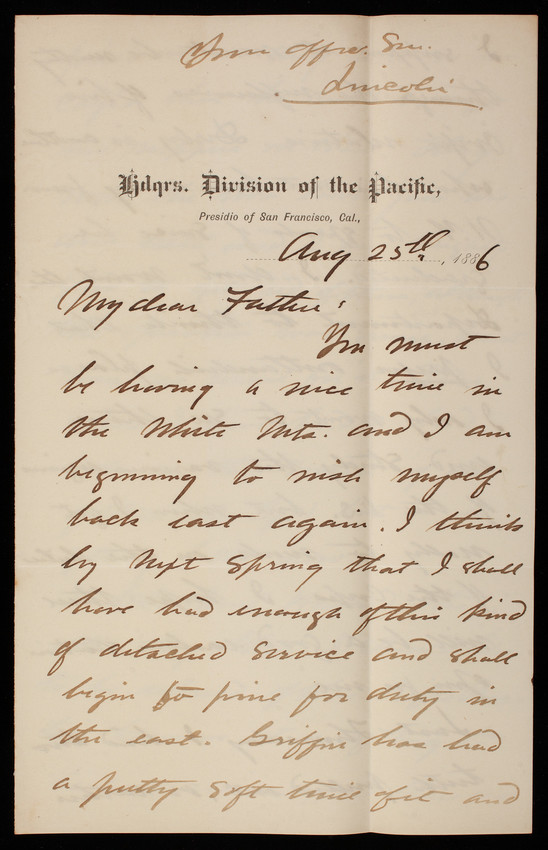 Your affec. Son.
Lincoln
Hdqrs. Division of the Pacific,
Presidio of San Francisco, Cal.,
Aug 25th, 1886
My dear Father:
You must
be having a nice time in
the White Mts. and I am
beginning to wish myself
back east again. I think
by next Spring that I shall
have had enough of this kind
of detached service and shall
begin to pine for duty in
the east. Griffin has had
a pretty soft time of it and